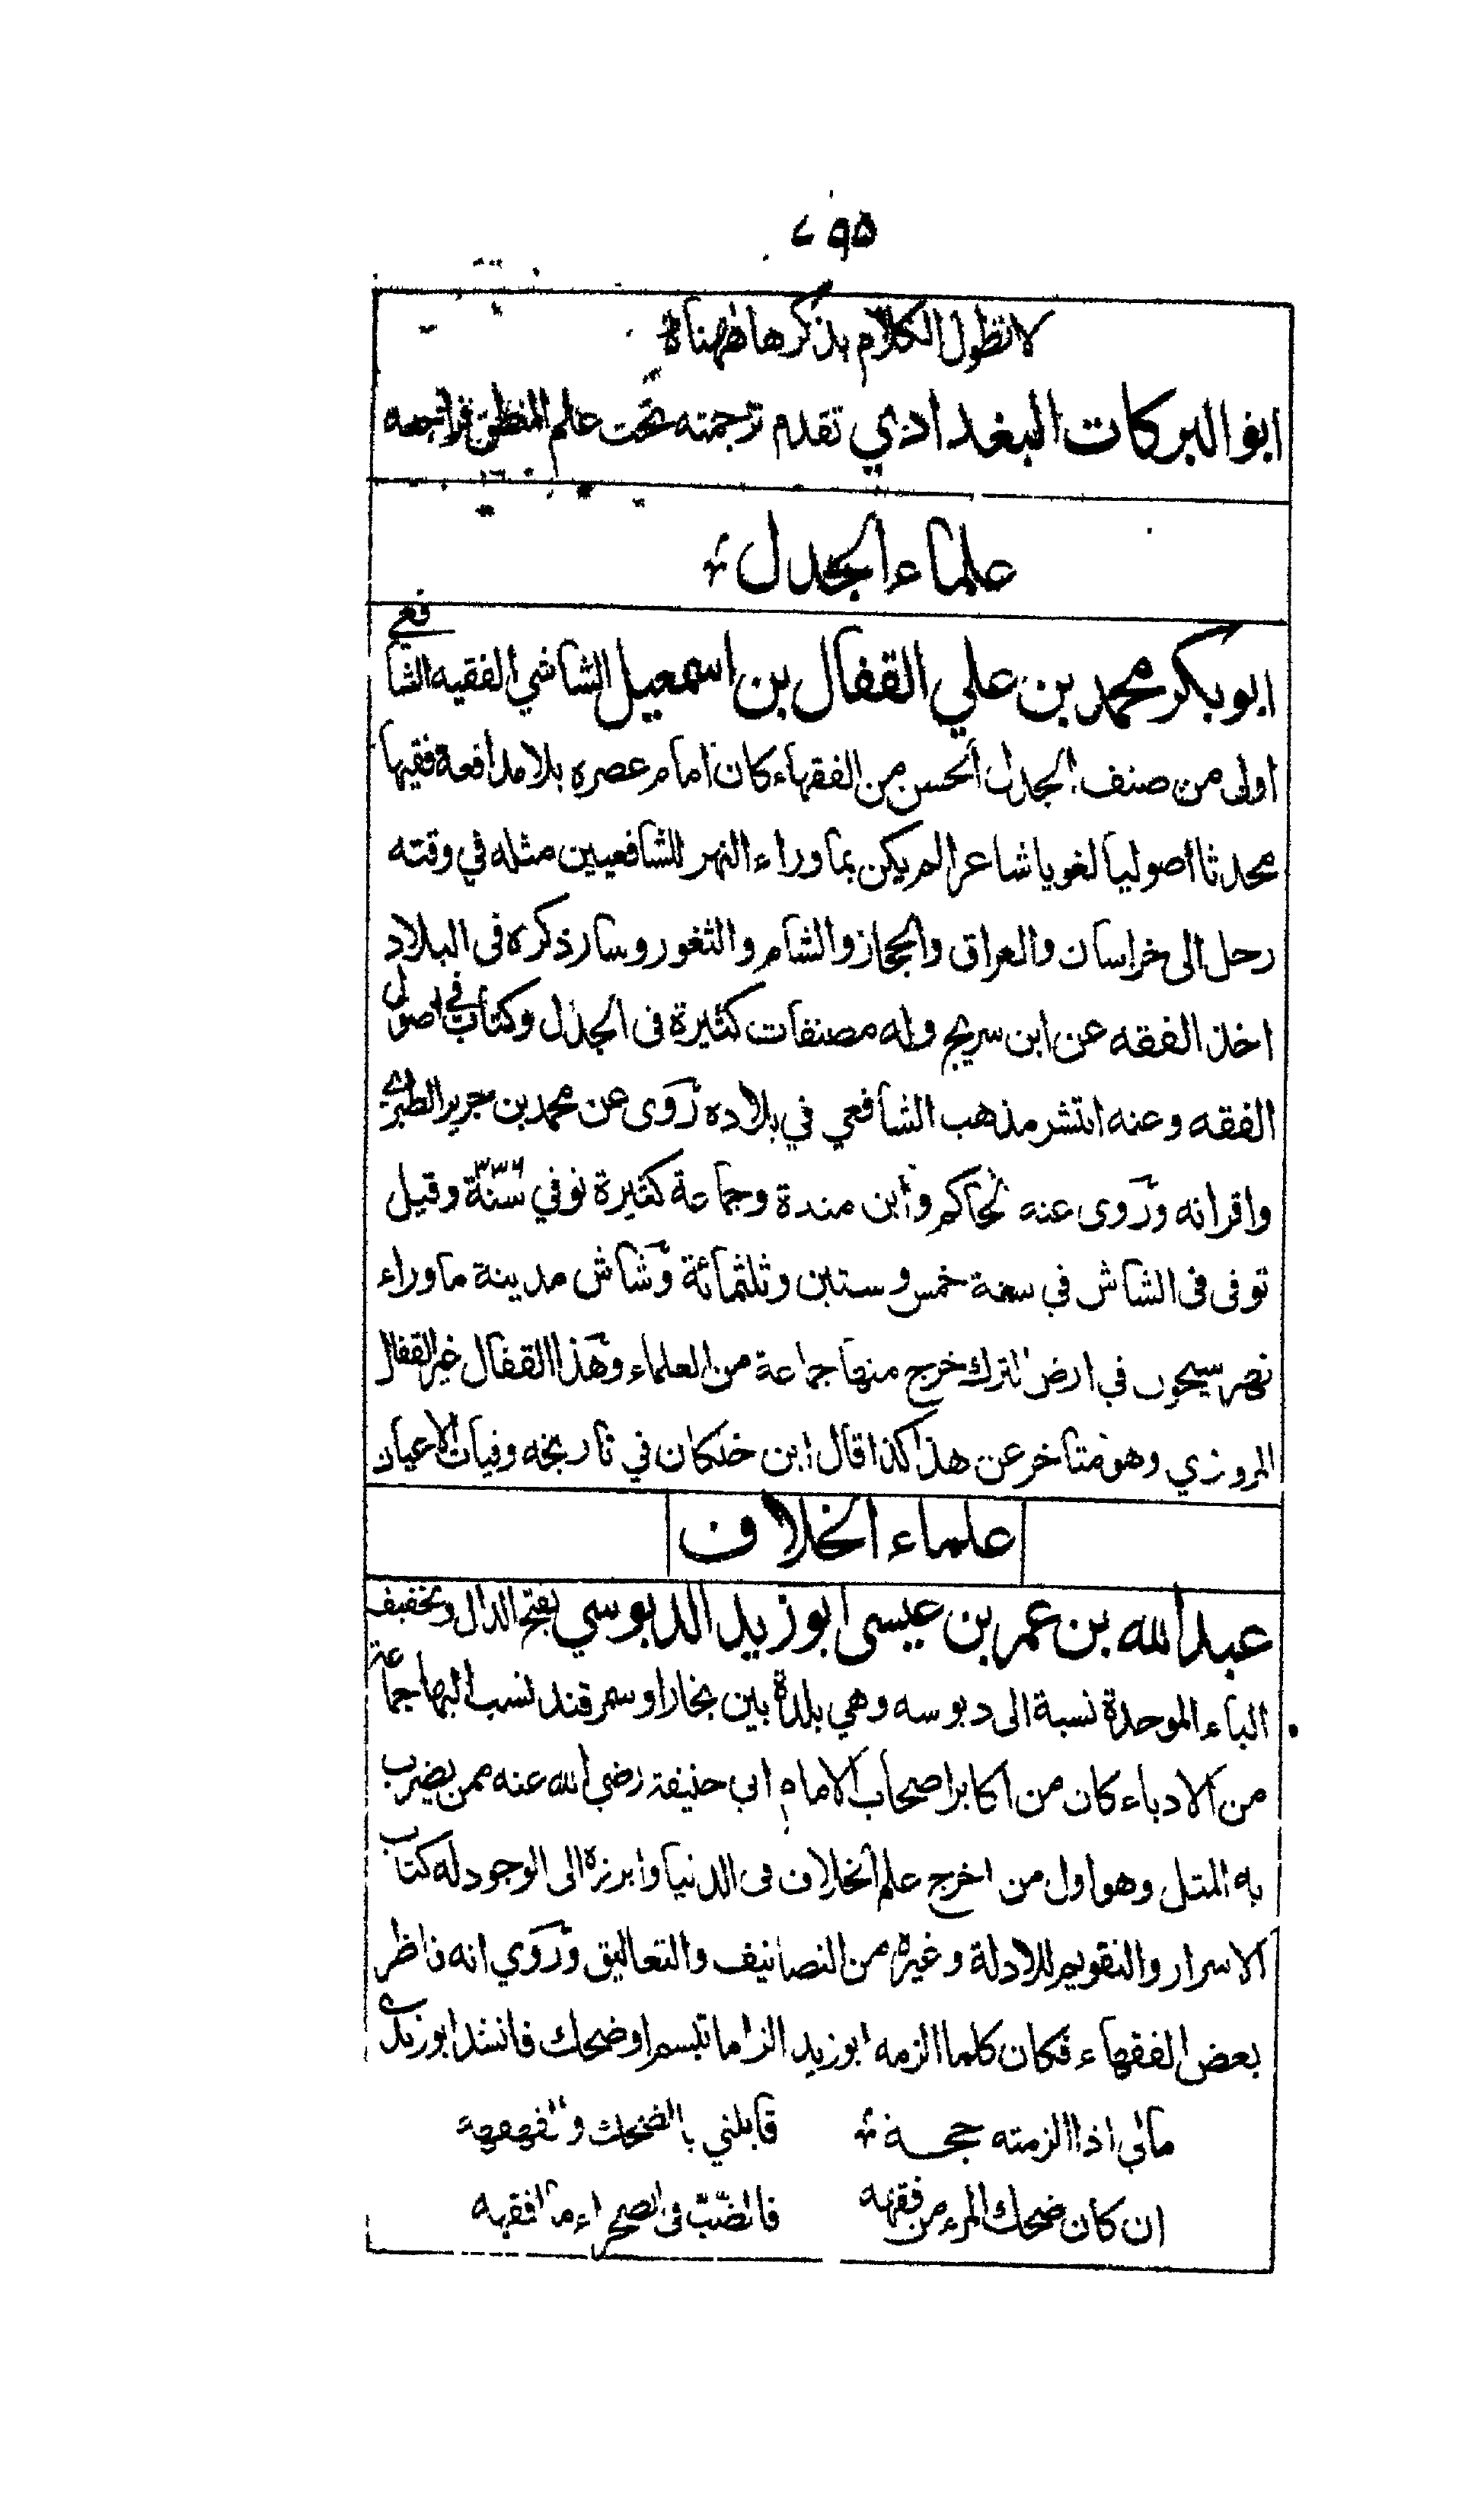 لا نطول الكلام بذكرها ههنا
ابو البركات البغدادي تقدم ترجمته تحت علم المنطق فراجعه
علماء الجدل
ابو بكر محمد بن علي القفال بن اسمعيل الشاشي الفقيه الشافعي
اولى من صنف الجدل الحسن من الفقهاء كان امام عصره بلا مدافعة فقيها
محدثا اصوليا لغويا شاعرا لم يكن بما وراء النهر للشافعيين مثله في وقته
رحل الى خراسان والعراق والحجاز والشام والثغور وسار ذكره في البلاد
اخذ الفقه عن ابن سريج وله مصنفات كثيرة في الجدل وكتاب في اصول
الفقه وعنه انتشر مذهب الشافعي في بلاده روى عن محمد بن جرير الطبري
واقرانه وروى عنه الحاكم وابن مندة وجماعة كثيرة توفي سنة ٣٣٦ وقيل
توفى فى الشاش في سنة خمس وستين وثلثمائة وشاش مدينة ما وراء
نهر سيحون في ارض الترك خرج منها جماعة من العلماء وهذا القفال غير القفال
المروزي وهو متاخر عن هذا كذا قال ابن خلكان في تاريخه وفيات الاعيان
علماء الخلاف
عبد الله بن عمر بن عيسى ابو زيد الدبوسي بفتح الدال وتخفيف
الباء الموحدة نسبة الى دبوسه وهي بلدة بين بخارا وسمرقند نسب اليها جماعة
من الادباء كان من اكابر اصحاب الامام ابي حنيفة رضي الله عنه ممن يضرب
به المثل وهو اول من اخرج علم الخلاف فى الدنيا وابرزه الى الوجود له كتاب
الاسرار والتقويم للادلة وغيره من التصانيف والتعاليق وروي انه ناظر
بعض الفقهاء فكان كلما الزمه ابو زيد الزاما تبسم او ضحك فانشد ابو زيد
مالي اذا الزمته حجة قابلني بالضحك والقهقهه
ان كان ضحك المرء من فقهه فالضب فى الصحراء ما افقهه